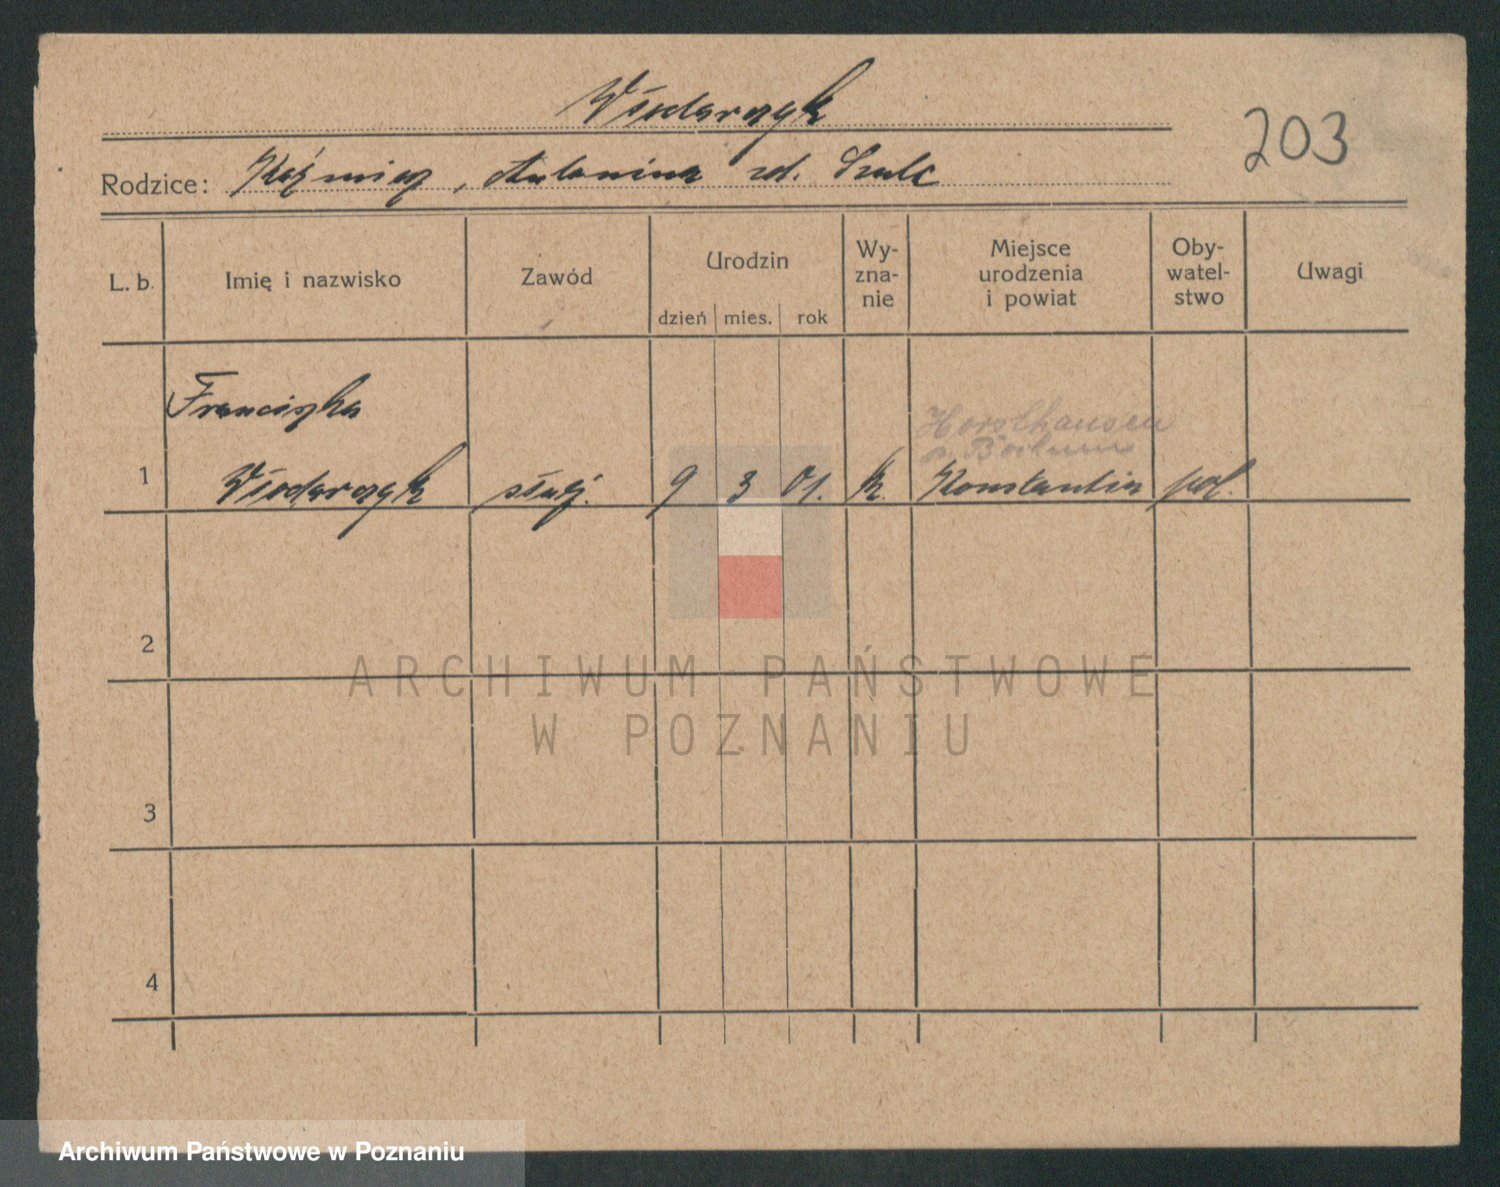 Włodarczyk
203
Rodzice: Kaźmierz, Antonina zd. Szulc
L. b. Imię i nazwisko Zawód Urodzin dzień mies. rok Wy-zna-nie Miejsce urodzenia i powiat Oby-watel-stwo Uwagi
Franciszka
Horsthausen
p. Bochum
1 Włodarczyk służ. 9 3 01. k. Konstantin pol.
2
ARCHIWUM PAŃSTWOWE
W POZNANIU
3
4
Archiwum Państwowe w Poznaniu